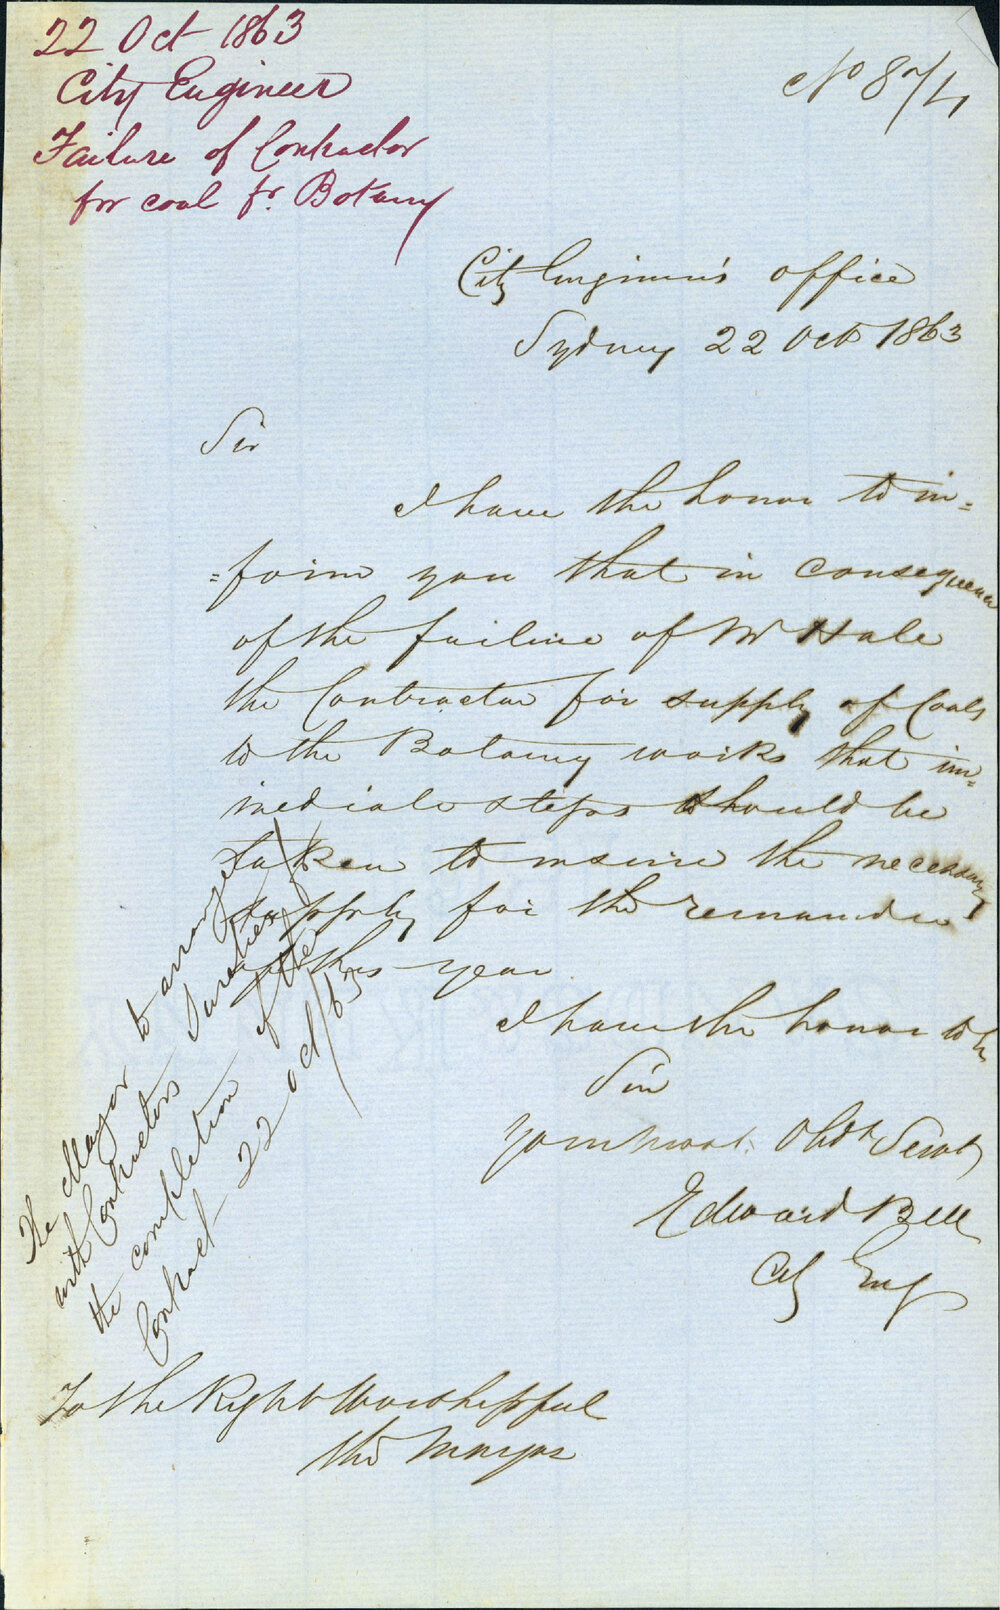 22 Oct 1863
City Engineer
Failure of Contractor
for coal fr. Botany
No 874
City Engineer's office
Sydney 22 Oct 1863
Sir
I have the honor to in=
=form you that in consequence
of the failure of Mr Hale
the Contractor for supply of Coals
to the Botany works that im=
mediate steps should be
taken to insure the necessary
supply for the remainder
of this year
I have the honor to be
Sir
Your most Obdt Servt
Edward Bell
City Eng
The Mayor to arrange
with Contractors Sureties for
the completion of the
Contract 22 Oct/63
To the Right Worshipful
the Mayor